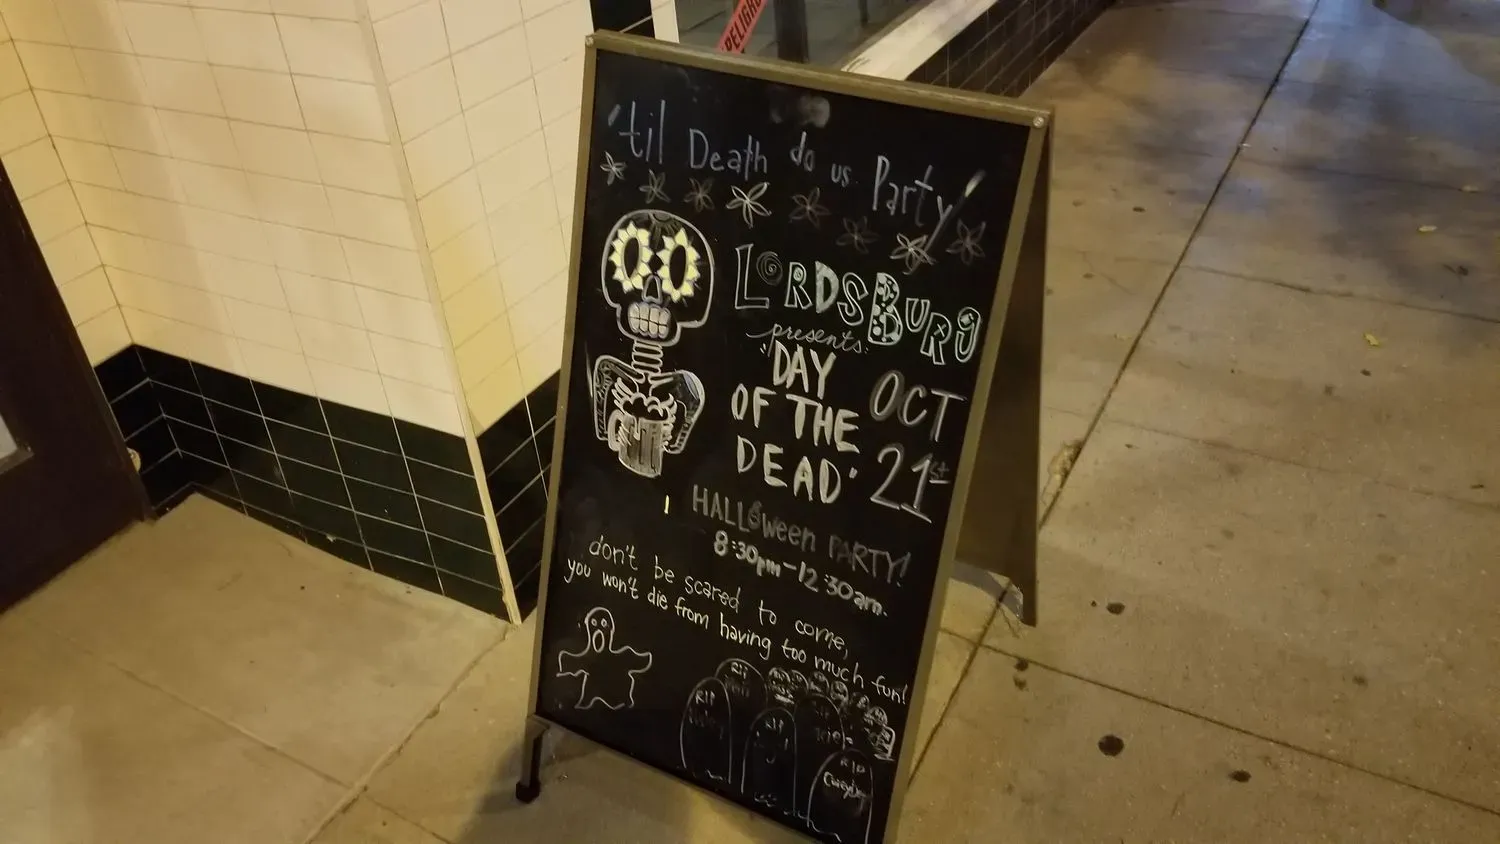 PELIGRO
'til Death do us Party
LORDSBURG
presents:
DAY
OF THE
DEAD'
OCT
21st
HALLOween PARTY!
8:30pm-12:30am.
don't be scared to come,
you won't die from having too much fun!
RIP
RIP
RIP
RIP